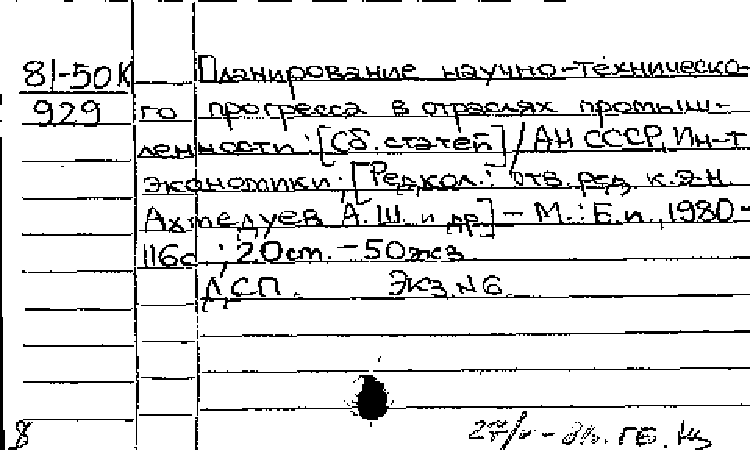 81-50К Планирование научно-техническо-
929 го прогресса в отраслях промыш-
ленности: [Сб. статей] / АН СССР, Ин-т
экономики: [Редкол.: отв. ред. к.э.н.
Ахмедуев А.Ш. и др] - М.: Б.и., 1980-
116с ; 20см. - 50экз
ДСП. Экз. №6
8